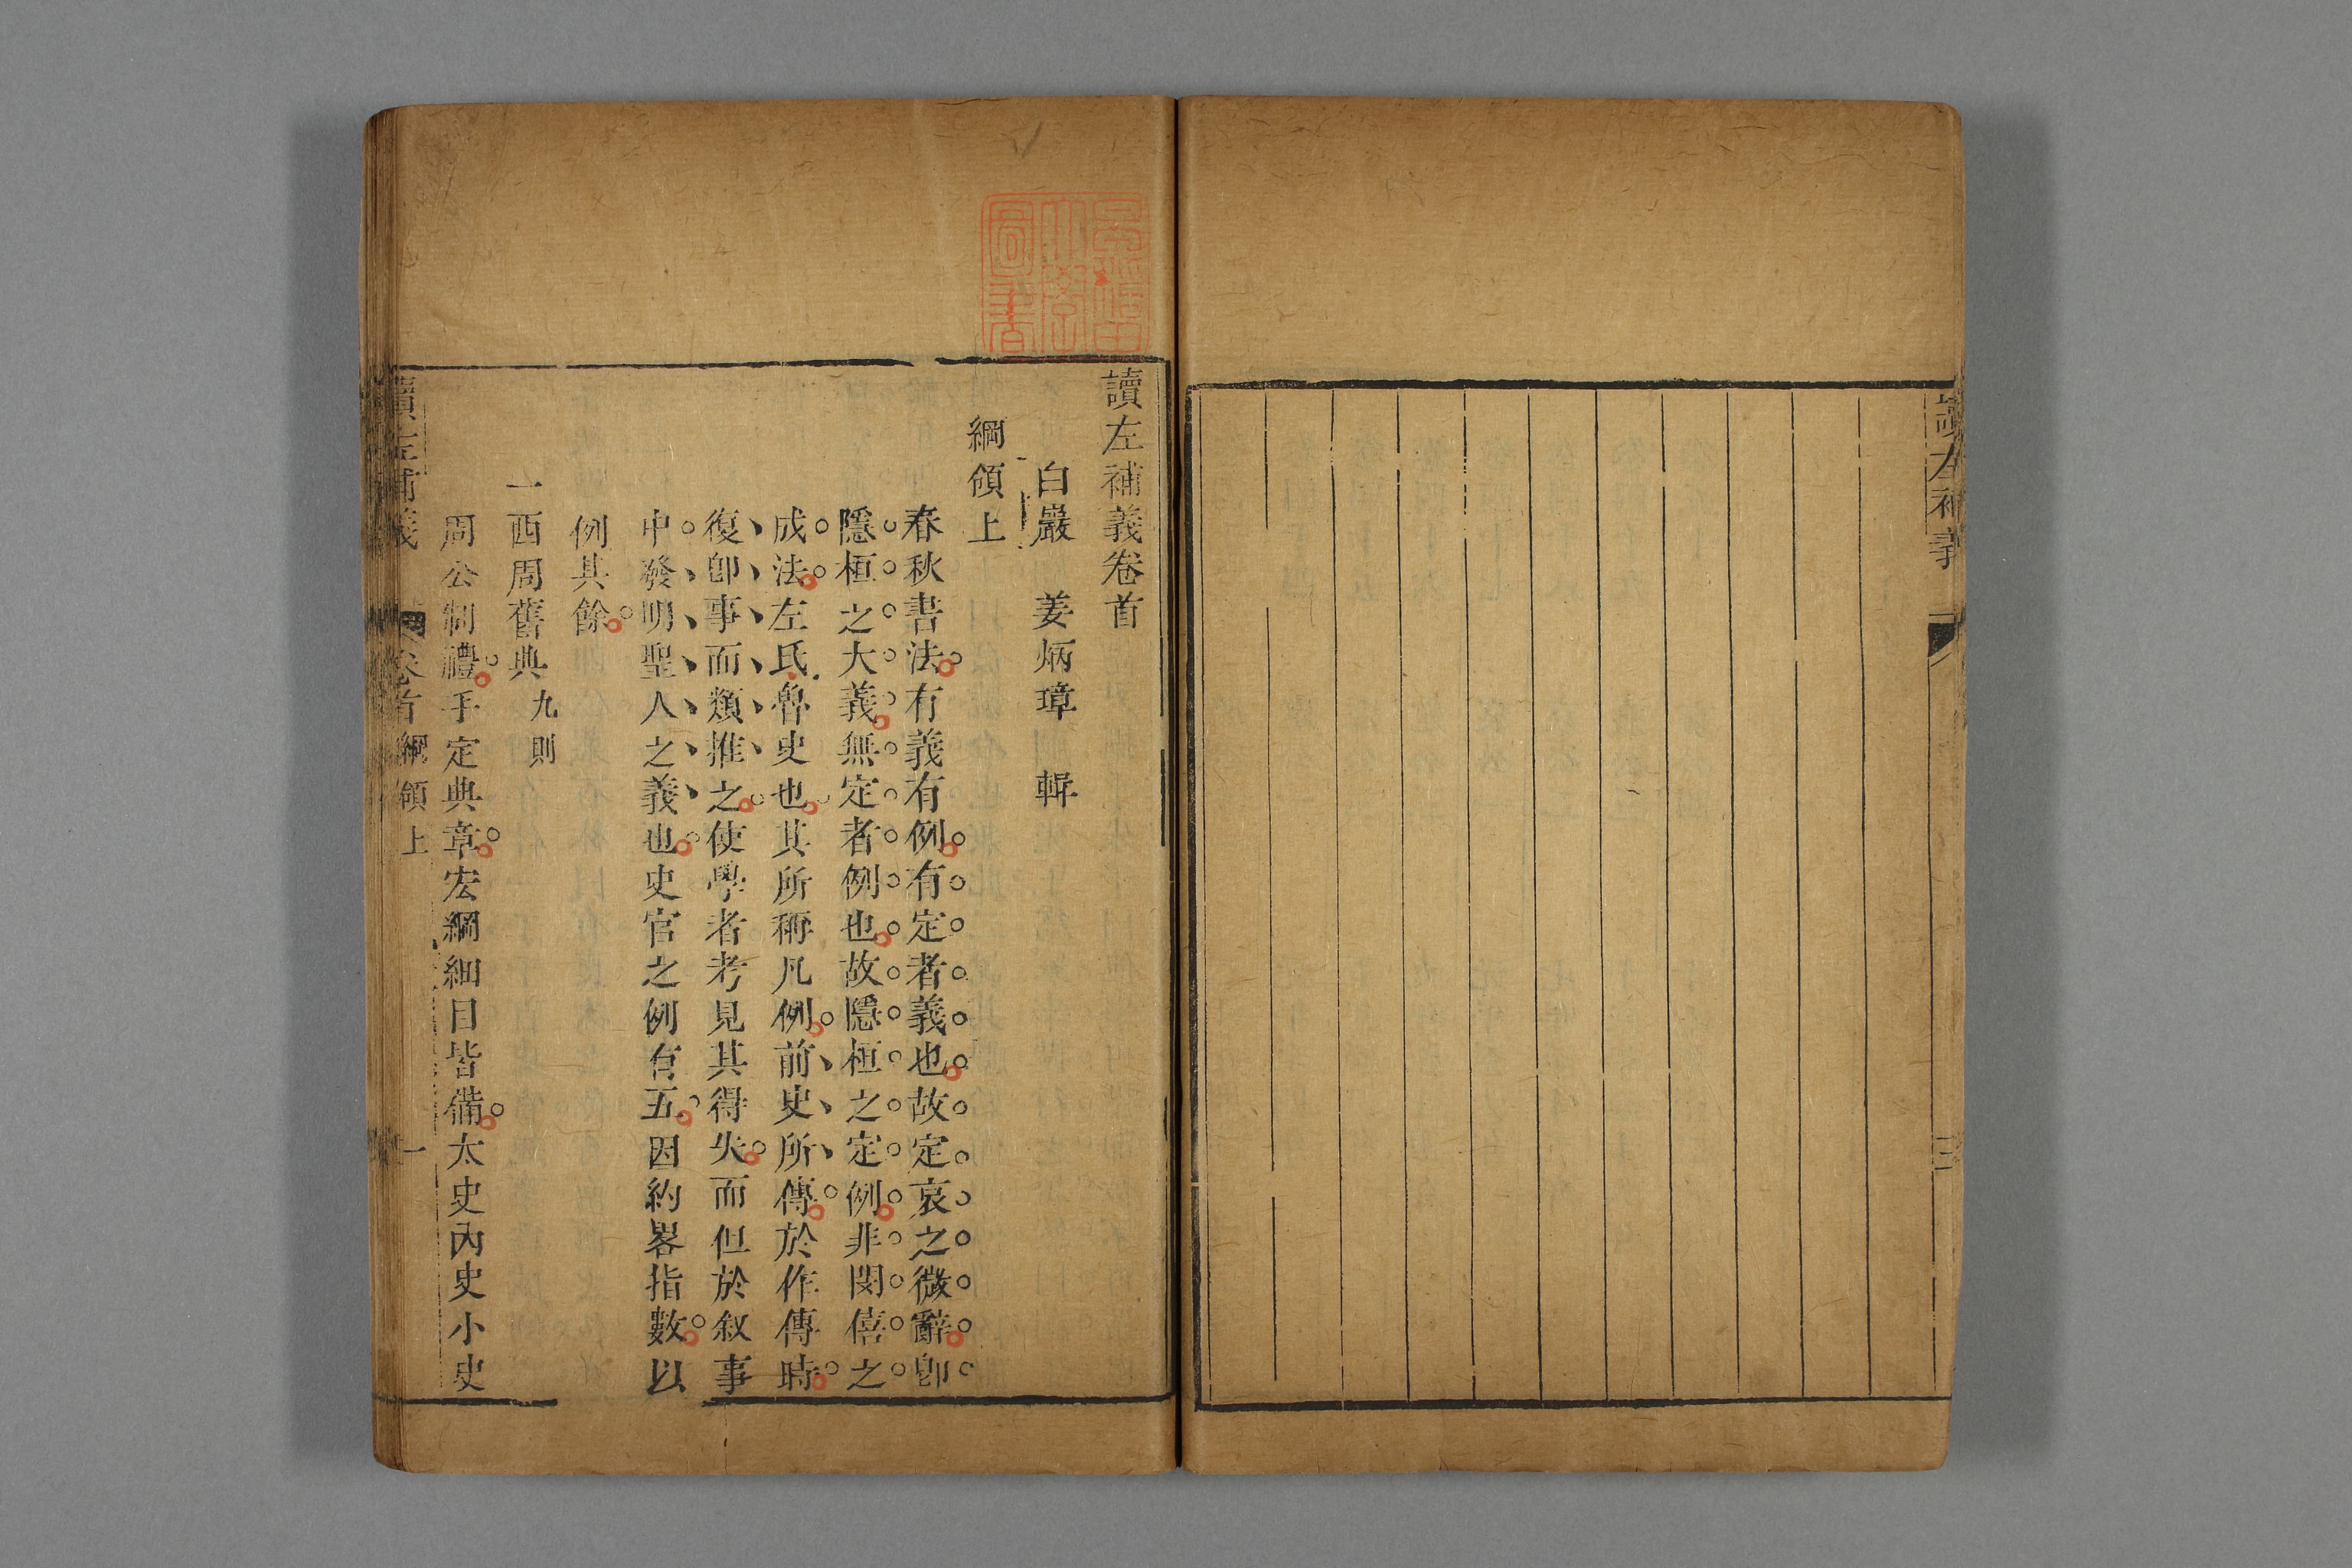 讀左補義
三
讀左補義卷首
白巖　姜炳璋　輯
綱領上
春秋書法有義有例有定者義也故定哀之微辭卽
隱桓之大義無定者例也故隱桓之定例非閔僖之
成法左氏魯史也其所稱凡例前史所傳於作傳時
復卽事而類推之使學者考見其得失而但於叙事
中發明聖人之義也史官之例有五因約畧指數以
例其餘
一西周舊典九則
周公制禮手定典章宏綱細目皆備太史內史小史
讀左補義　卷首　綱領上　一